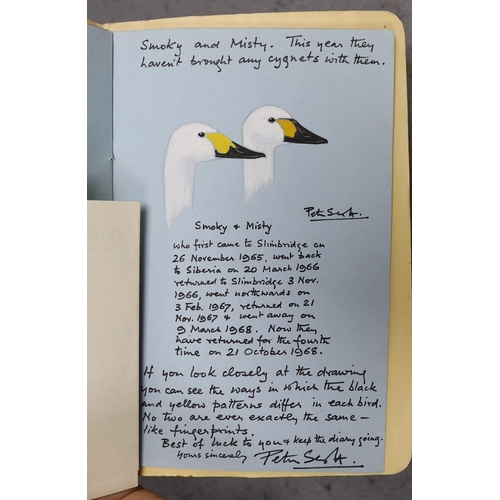 Smoky and Misty. This year they
haven't brought any cygnets with them.
Peter Scott.
Smoky & Misty
who first came to Slimbridge on
26 November 1965, went back
to Siberia on 20 March 1966
returned to Slimbridge 3 Nov.
1966, went northwards on
3 Feb. 1967, returned on 21
Nov. 1967 & went away on
9 March 1968. Now they
have returned for the fourth
time on 21 October 1968.
If you look closely at the drawing
you can see the ways in which the black
and yellow patterns differ in each bird.
No two are ever exactly the same –
like fingerprints.
Best of luck to you & keep the diary going.
Yours sincerely Peter Scott.